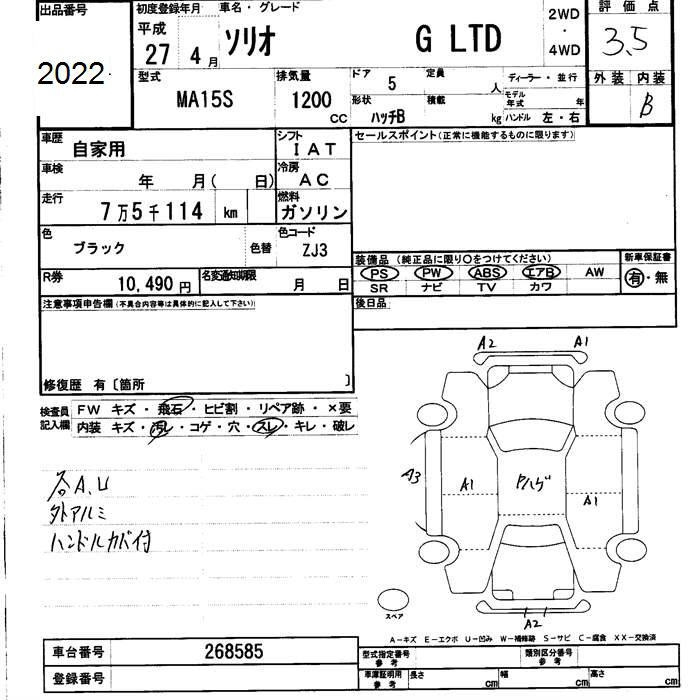 出品番号
2022
初度登録年月
平成
27 4月
車名・グレード
ソリオ G LTD
2WD
・
4WD
評価点
3.5
外装 内装
B
型式
MA15S
排気量
1200
CC
ドア 5
定員 人
形状
ハッチB
積載 kg
ディーラー・並行
モデル
年式 年
ハンドル 左・右
車歴
自家用
シフト
IAT
車検
年 月( 日)
冷房
AC
走行
7万5千114 km
燃料
ガソリン
色
ブラック
色替
色コード
ZJ3
R券
10,490円
名変通知期限
月 日
セールスポイント(正常に機能するものに限ります)
装備品 (純正品に限り○をつけてください)
新車保証書
PS PW ABS エアB AW
有・無
SR ナビ TV カワ
後日品
注意事項申告欄(不具合内容等は具体的に記入して下さい)
修復歴 有〔箇所 〕
検査員
記入欄
FW キズ・飛石・ヒビ割・リペア跡・×要
内装 キズ・汚レ・コゲ・穴・スレ・キレ・破レ
各A、U
外アルミ
ハンドルカバ付
A2
A1
A3
A1
A1
A2
スペア
A-キズ E-エクボ U-凹み W-補修跡 S-サビ C-腐食 XX-交換済
車台番号
268585
登録番号
型式指定番号
参考
類別区分番号
参考
車庫証明用
参考
長さ cm
幅 cm
高さ cm